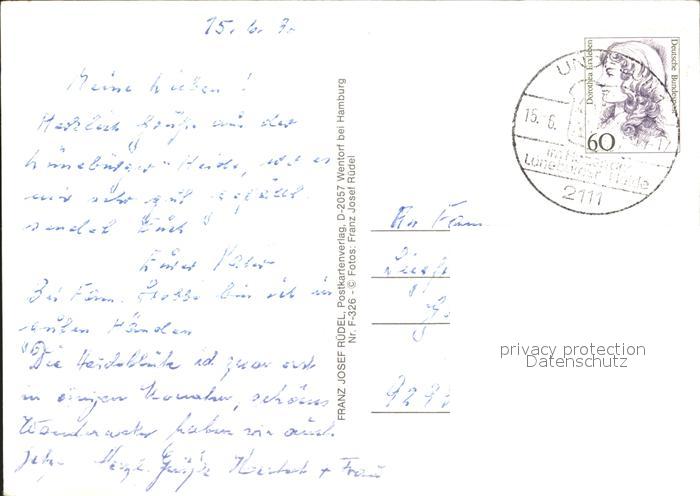 15. 6. 9.
Meine Lieben!
Herzliche Grüße aus der
Lüneburger-Heide, wo es
mir sehr gut gefällt
sendet Euch
Euer Vater
Bei Fam. bin ich in
guten Händen
Die Heideblüte ist zwar erst
in einigen Monaten, schöne
Wanderwetter haben wir auch
jetzt. Herzl. Grüße + Frau
FRANZ JOSEF RÜDEL, Postkartenverlag, D-2057 Wentorf bei Hamburg
Nr. F-326 - © Fotos: Franz Josef Rüdel
An Fam.
929
Dorothea Erxleben
Deutsche Bundespost
60
UN
15.6.
Lüneburger Heide
2111
privacy protection
Datenschutz